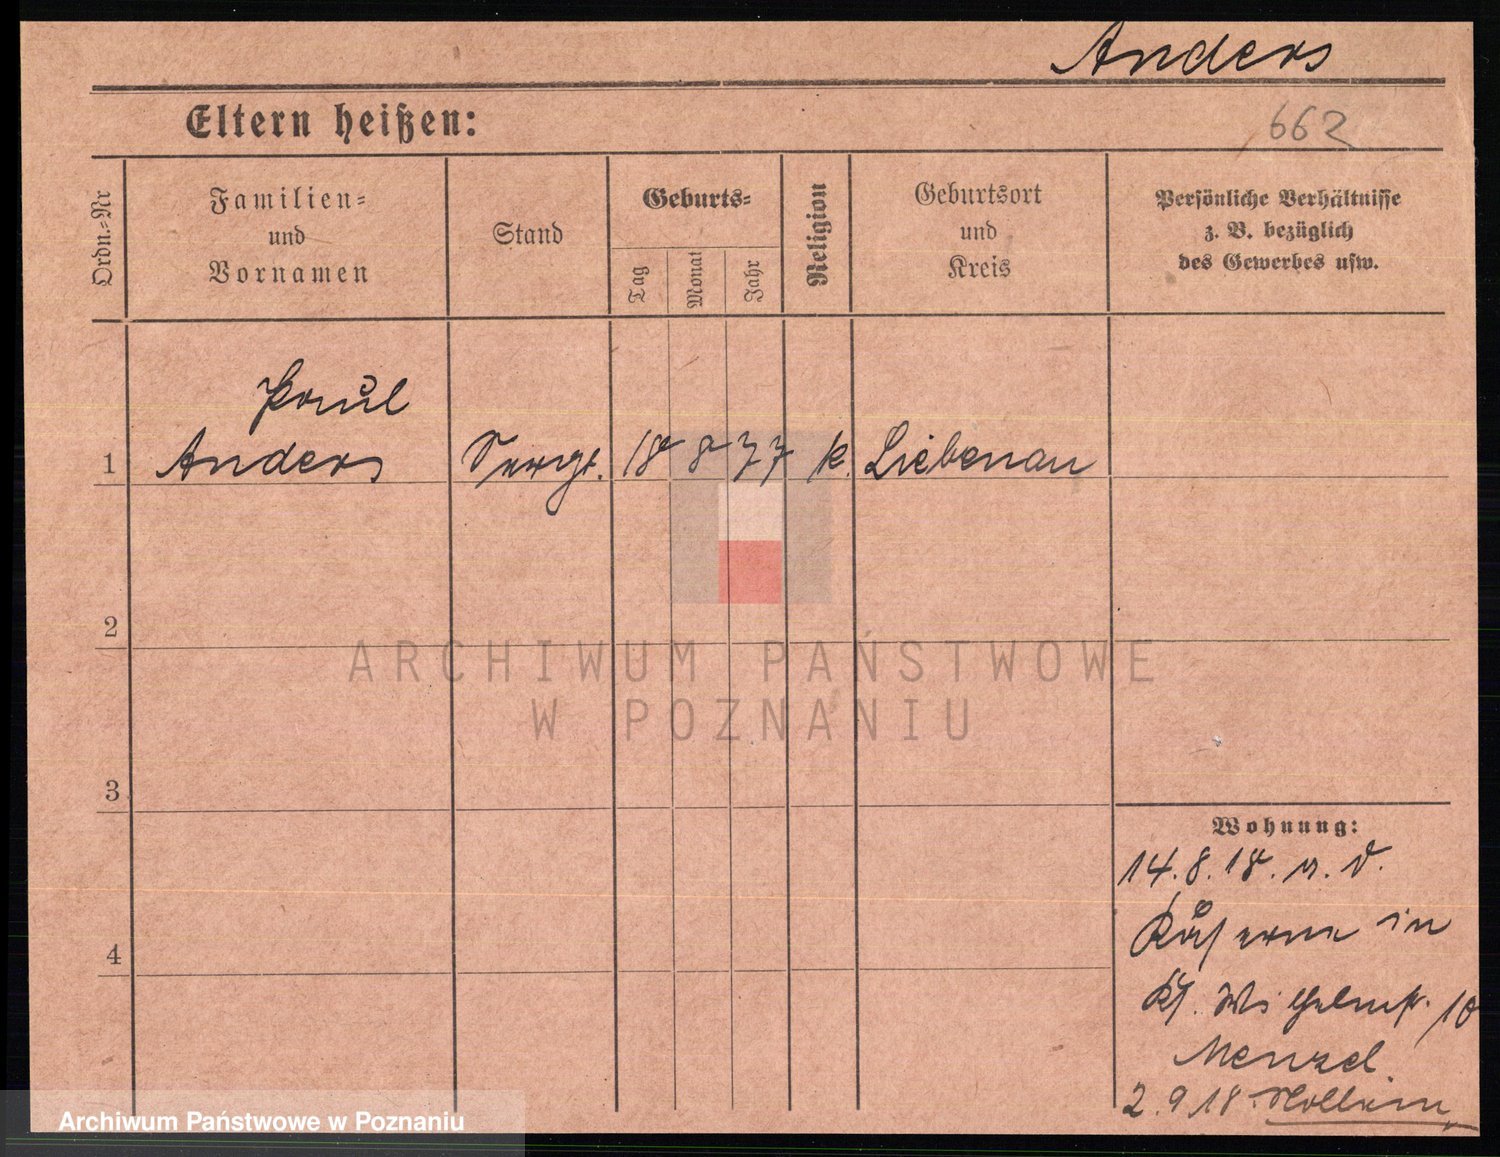 Anders
Eltern heißen:
662
Ordn.-Nr
Familien-
und
Vornamen
Stand
Geburts-
Tag
Monat
Jahr
Religion
Geburtsort
und
Kreis
Persönliche Verhältnisse
z. B. bezüglich
des Gewerbes usw.
Paul
1 Anders Sergt. 18 8 77 k. Liebenau
2
3
4
ARCHIWUM PAŃSTWOWE
W POZNANIU
Wohnung:
14.8.18. v. d.
Kaserne in
Kl. Wilhelmstr. 10
Menzel
2.9.18
Archiwum Państwowe w Poznaniu